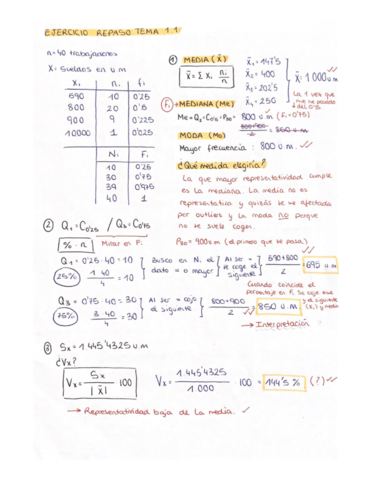 EJERCICIO REPASO TEMA 1.1
n=40 trabajadores
X: Sueldos en u m
xi ni fi
690 10 0'25
800 20 0'5
900 9 0'225
10000 1 0'025
Ni Fi
10 0'25
30 0'75
39 0'975
40 1
① MEDIA (x̄)
x̄ = Σ Xi · ni/n
x̄1 = 147'5
x̄2 = 400
x̄3 = 202'5
x̄4 = 250
x̄: 1000 u m
La 1 vez que
Fi → MEDIANA (Me)
Me = Q2 = C0'5 = P50 = 800 u m (Fi = 0'75)
MODA (Mo)
Mayor frecuencia: 800 u m.
¿Qué medida elegiría?
La que mayor representatividad cumple
es la mediana. La media no es
representativa y quizás se ve afectada
por outliers y la moda no porque
no se suele coger.
② Q1 = C0'25 / Q3 = C0'75
% · n Mirar en Fi
P80 = 900 u m (el primero que se pasa)
Q1 = 0'25 · 40 = 10
25% 1 · 40 / 4 = 10
Busco en Ni el
dato = o mayor
Al ser = se coge el siguiente
690+800 / 2 = 695 u m
Cuando coincide el
porcentaje en Fi
Q3 = 0'75 · 40 = 30
75% 3 · 40 / 4 = 30
Al ser = cojo
el siguiente
800+900 / 2 = 850 u m
y el siguiente
(xi) y medio
→ Interpretación
③ Sx = 1445'4325 u m
¿Vx?
Vx = Sx / |x̄| · 100
Vx = 1445'4325 / 1000 · 100 = 144'5 % (?)
→ Representatividad baja de la media.